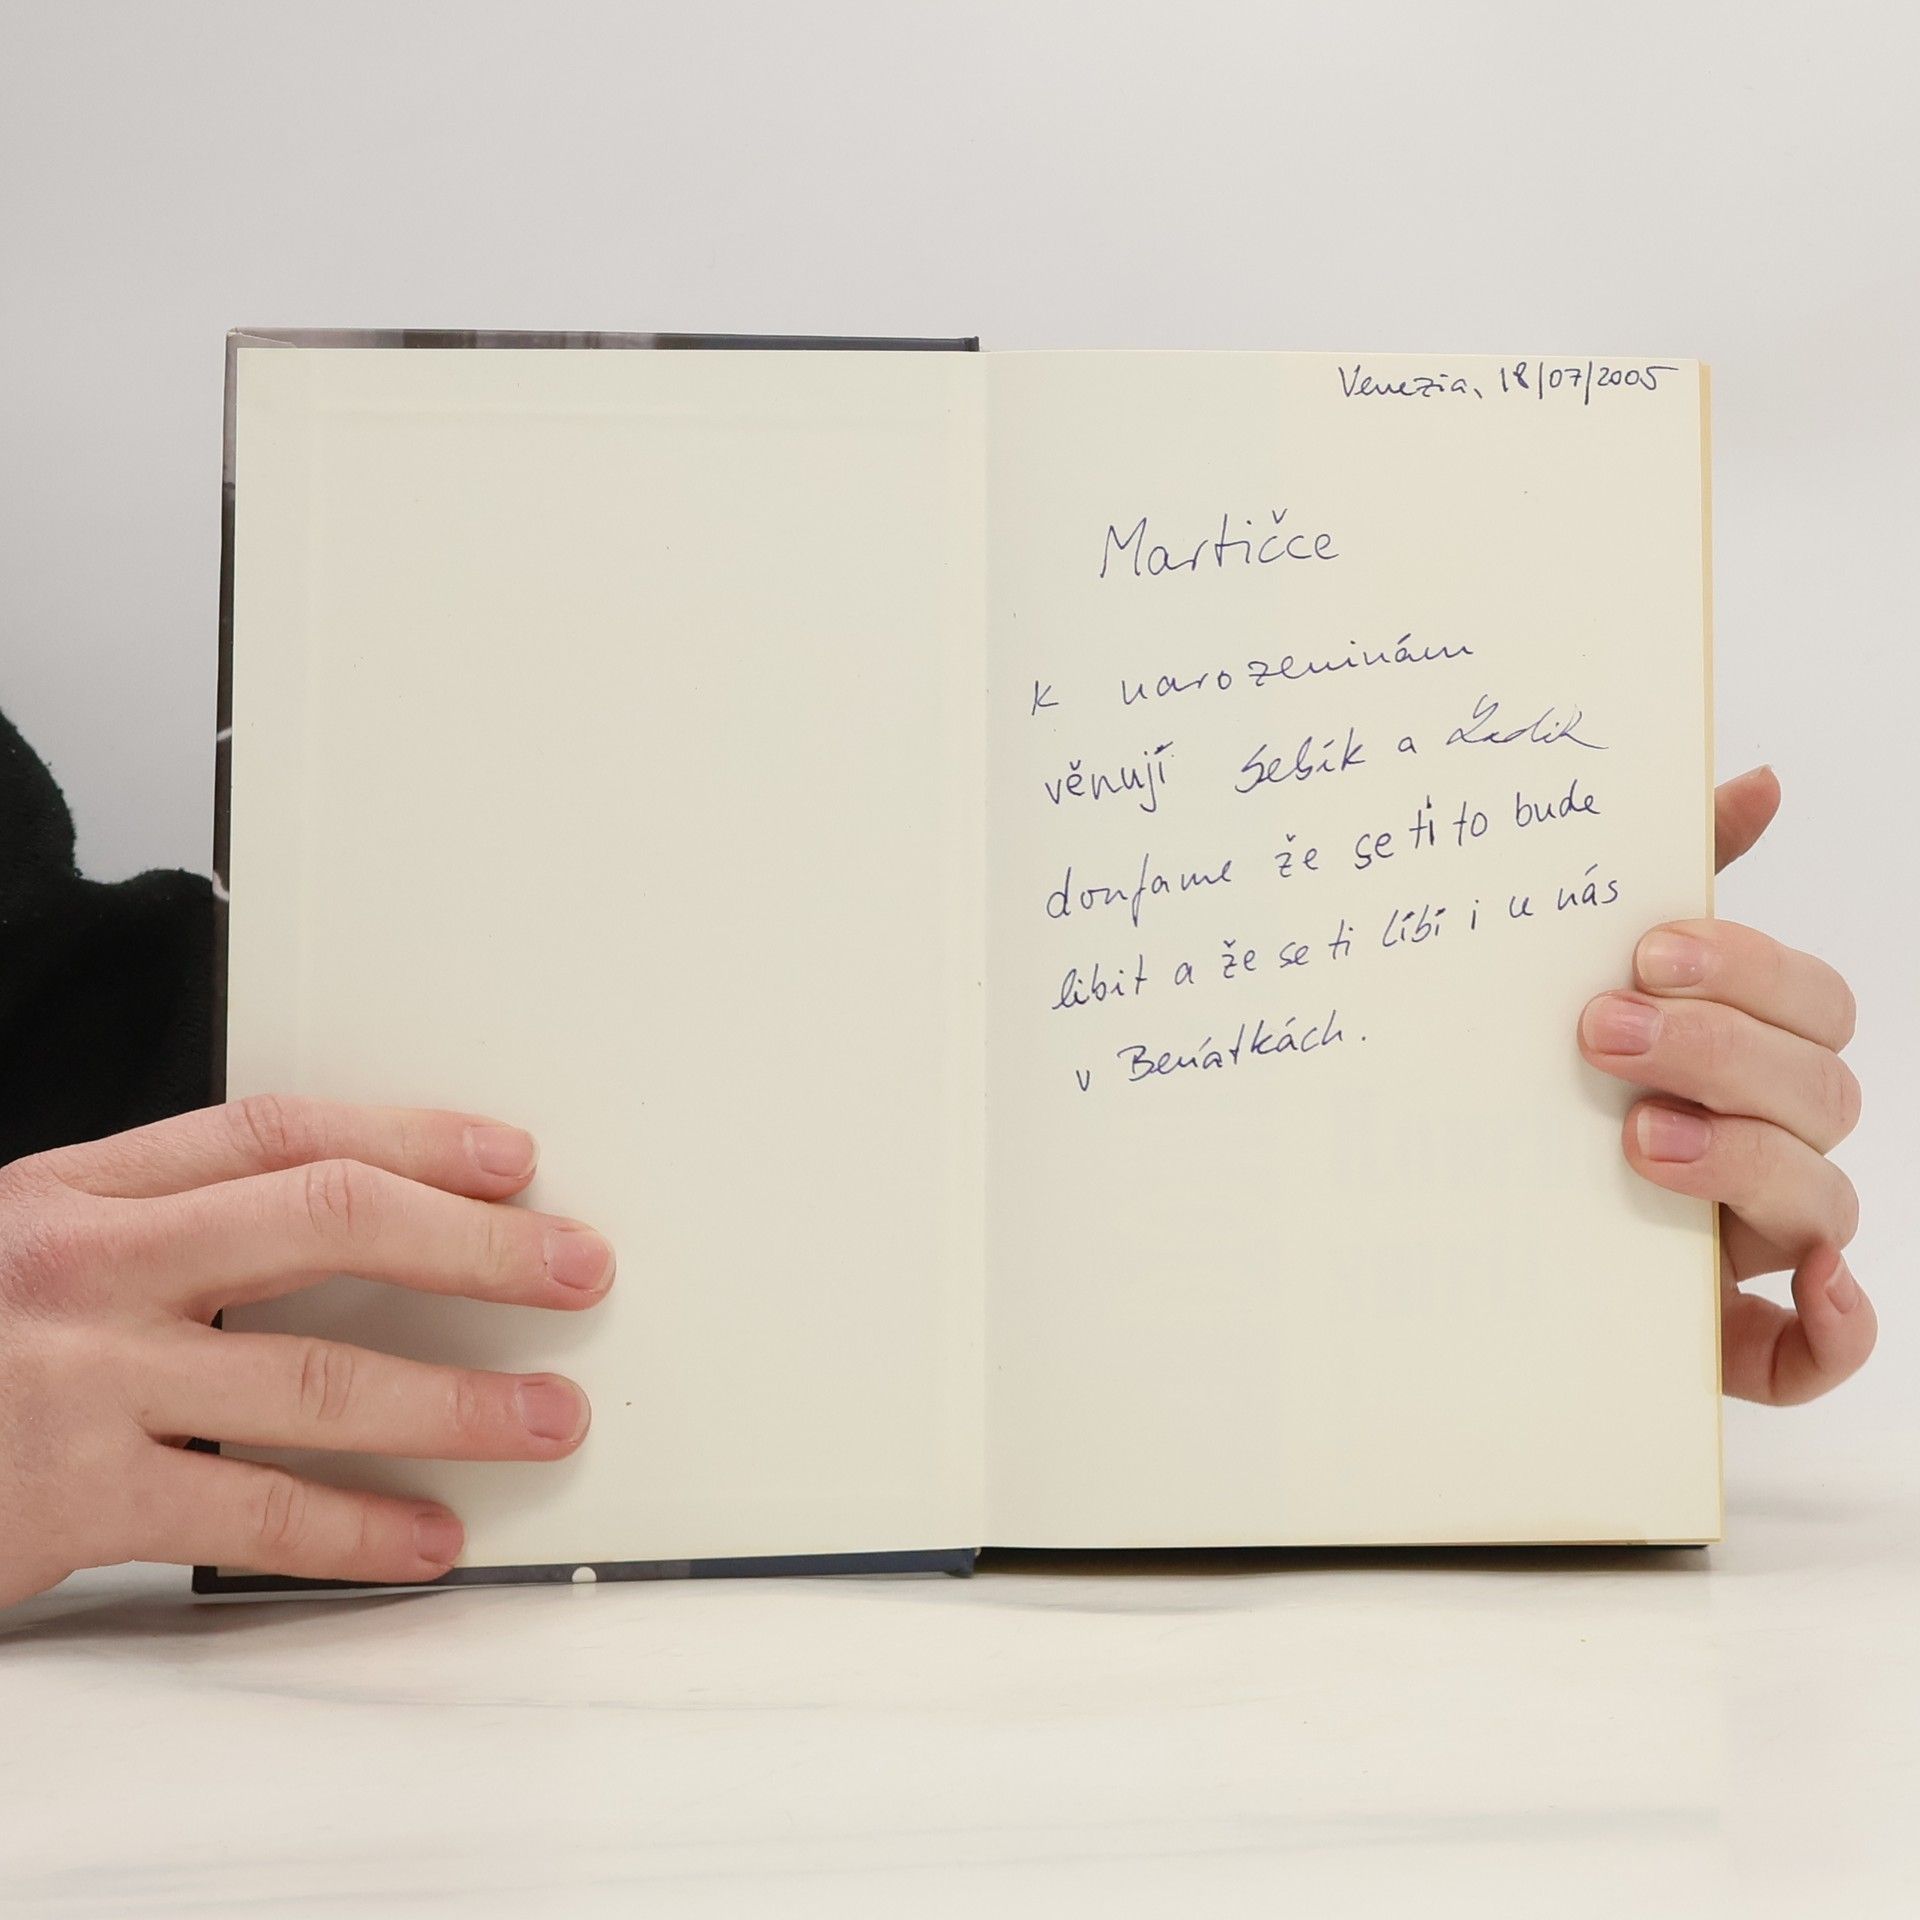 Venezia, 18/07/2005
Martičce
k narozeninám
věnují Sebík a
doufame že se ti to bude
libit a že se ti líbí i u nás
v Benátkách.